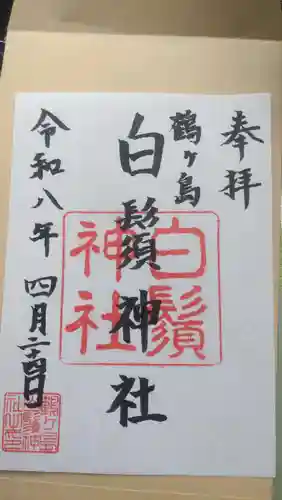 奉拝
鶴ヶ島
白髭須神社
白鬚神社
令和八年四月二十四日